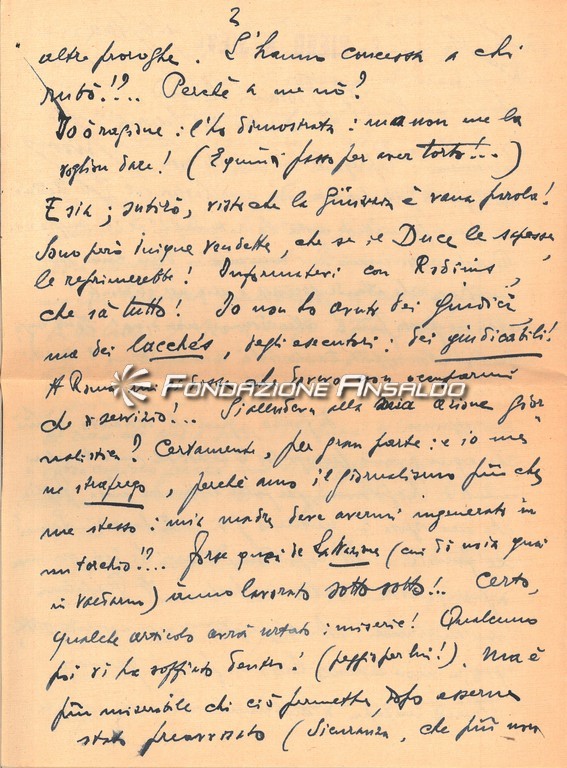 3
altre proroghe. L'hanno concessa a chi
rubò!?.. Perchè a me nò?
Io ò ragione: l'ho dimostrata: ma non me la
voglion dare! (E quindi passo per aver torto!...)
E sia; subirò, visto che la Giustizia è vana parola!
Sono però inique vendette, che se il Duce le sapesse
le reprimerebbe! Informatevi con
che sà tutto! Io non ho avuto dei giudici,
ma dei lacchés, degli esecutori: dei giudicàbili!
A Roma che dovevo non occuparmi
che servizio!... Si alludeva alla mia azione gior
nalistica? Certamente, per gran parte: e io me
ne strafrego, perchè amo il giornalismo più che
me stesso: mia madre deve avermi ingenerato in
un torchio!?.. Forse quei de La Nazione (cui dà noia quei
in Valdarno) ànno lavorato sotto sotto!.. Certo,
qualche articolo avrà urtato: miserie! Qualcuno
poi vi ha soffiato dentro! (peggio per lui!). Ma è
più miserabile chi ciò permette, dopo esserne
stato preavvisato (Sicurezza, che più non
FONDAZIONE ANSALDO